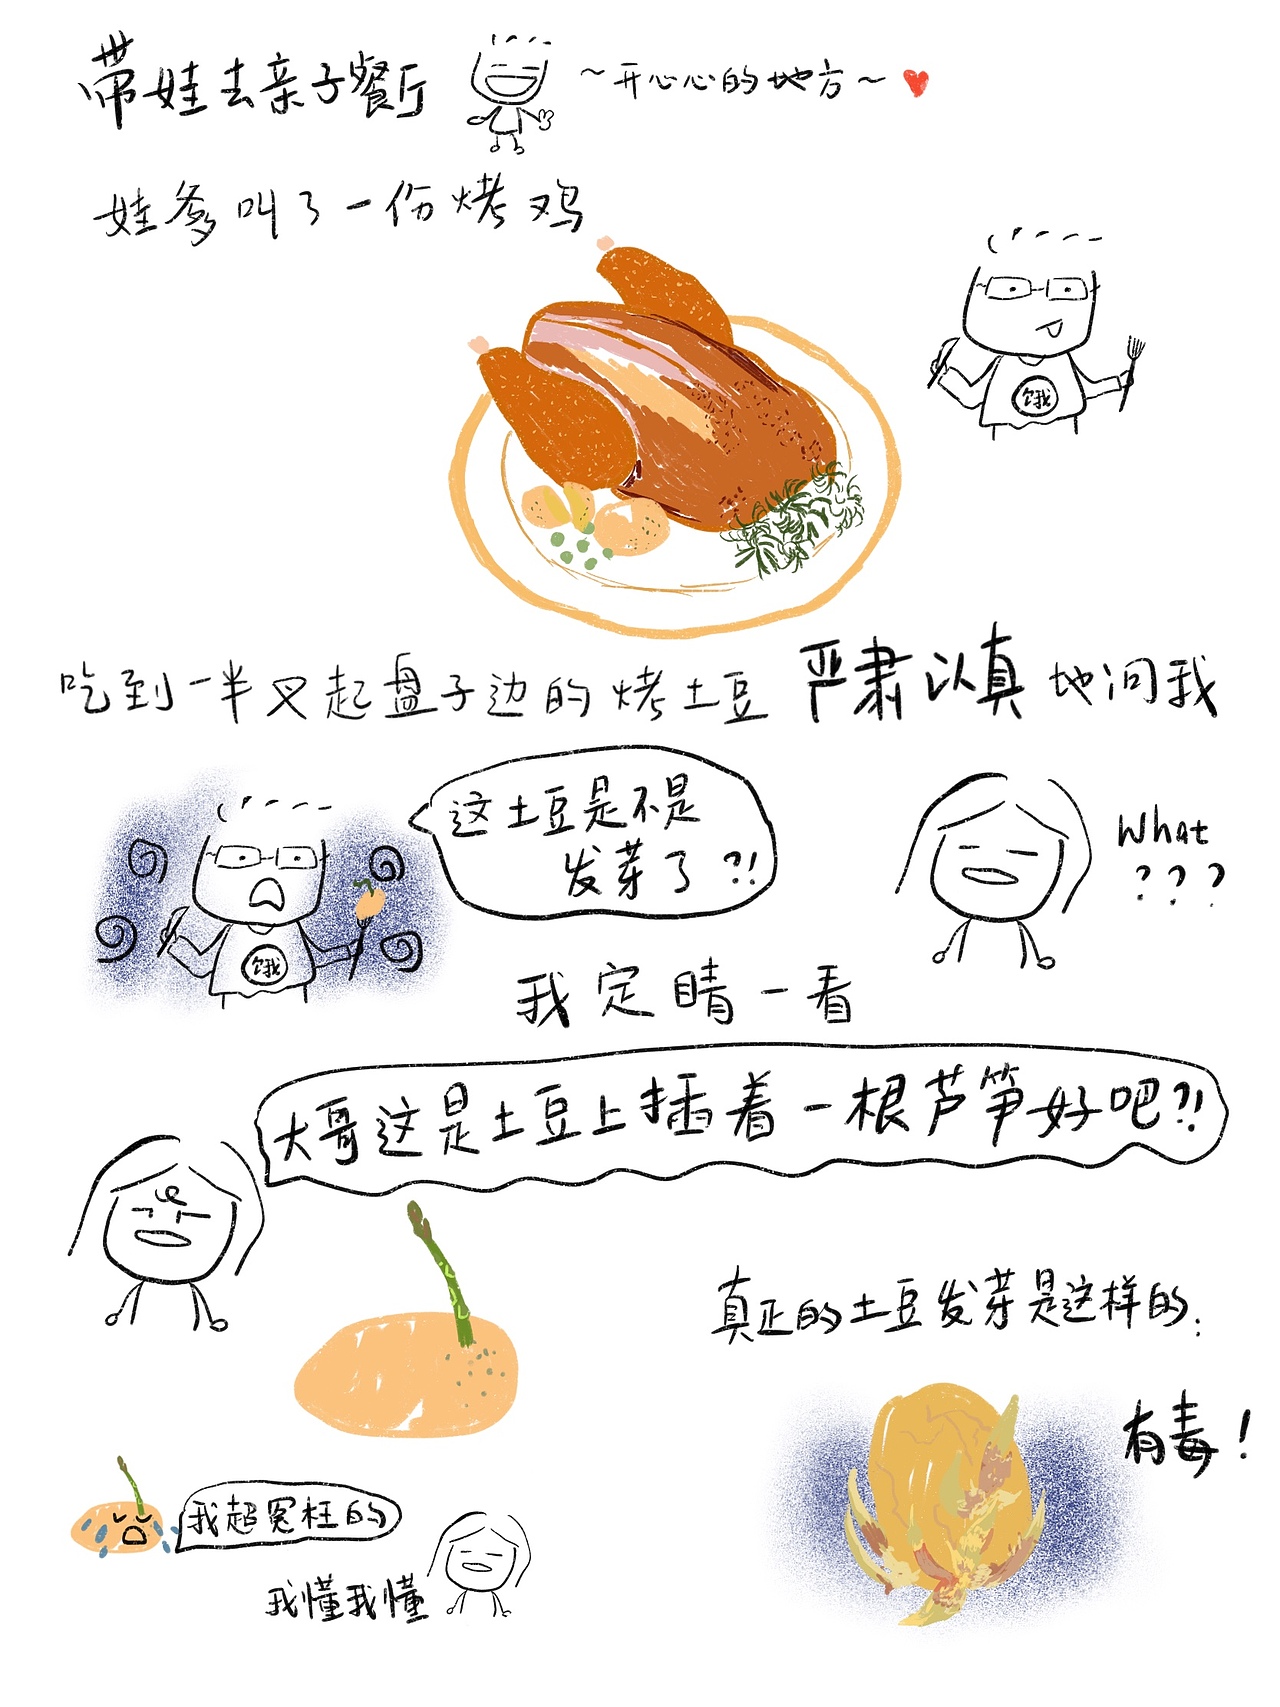 带娃去亲子餐厅 ~开心心的地方~
娃爹叫了一份烤鸡
饿
吃到一半叉起盘子边的烤土豆 严肃认真地问我
这土豆是不是
发芽了?!
What
???
饿
我定睛一看
大哥这是土豆上插着一根芦笋好吧?!
真正的土豆发芽是这样的:
有毒!
我超冤枉的
我懂我懂